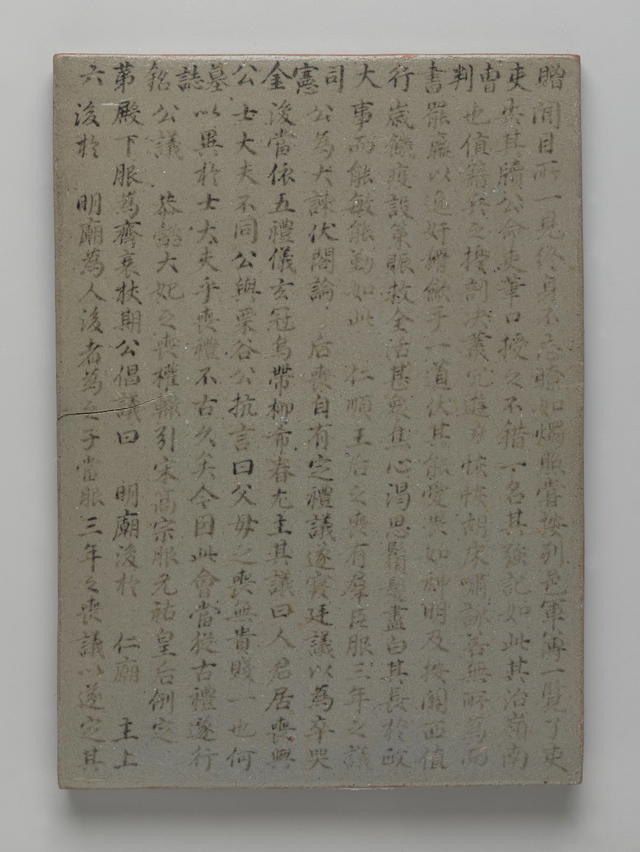 贈吏曹判書行大司憲金公墓誌銘 第六
聞目所一見終身不忘瞭如燭照嘗按列邑軍簿一覽了吏
失其牘公命吏筆口授之不錯一名其強記如此其治嶺南
也偵籍兵之擾剖决叢冗遊刃恢恢胡床嘯詠若無所爲而
罷癃以追奸猾歛手一道伏其能愛畏如神明及按關西值
歲饑疫設策賑救全活甚衆焦心渴思鬚髮盡白其長於政
事而能敏能勤如此 仁順王后之喪有羣臣服三年之議
公爲大諫伏閤論 后喪自有定禮議遂寢廷議以爲卒哭
後當依五禮儀玄冠烏帶柳希春尤主其議曰人君居喪與
士大夫不同公與栗谷公抗言曰父母之喪無貴賤一也何
以異於士大夫乎喪禮不古久矣今因此會當復古禮遂行
公議 恭懿大妃之喪權轍引宋高宗服元祐皇后例定
殿下服爲齊衰杖期公倡議曰 明廟後於 仁廟 主上
後於 明廟爲人後者爲之子當服三年之喪議以遂定其